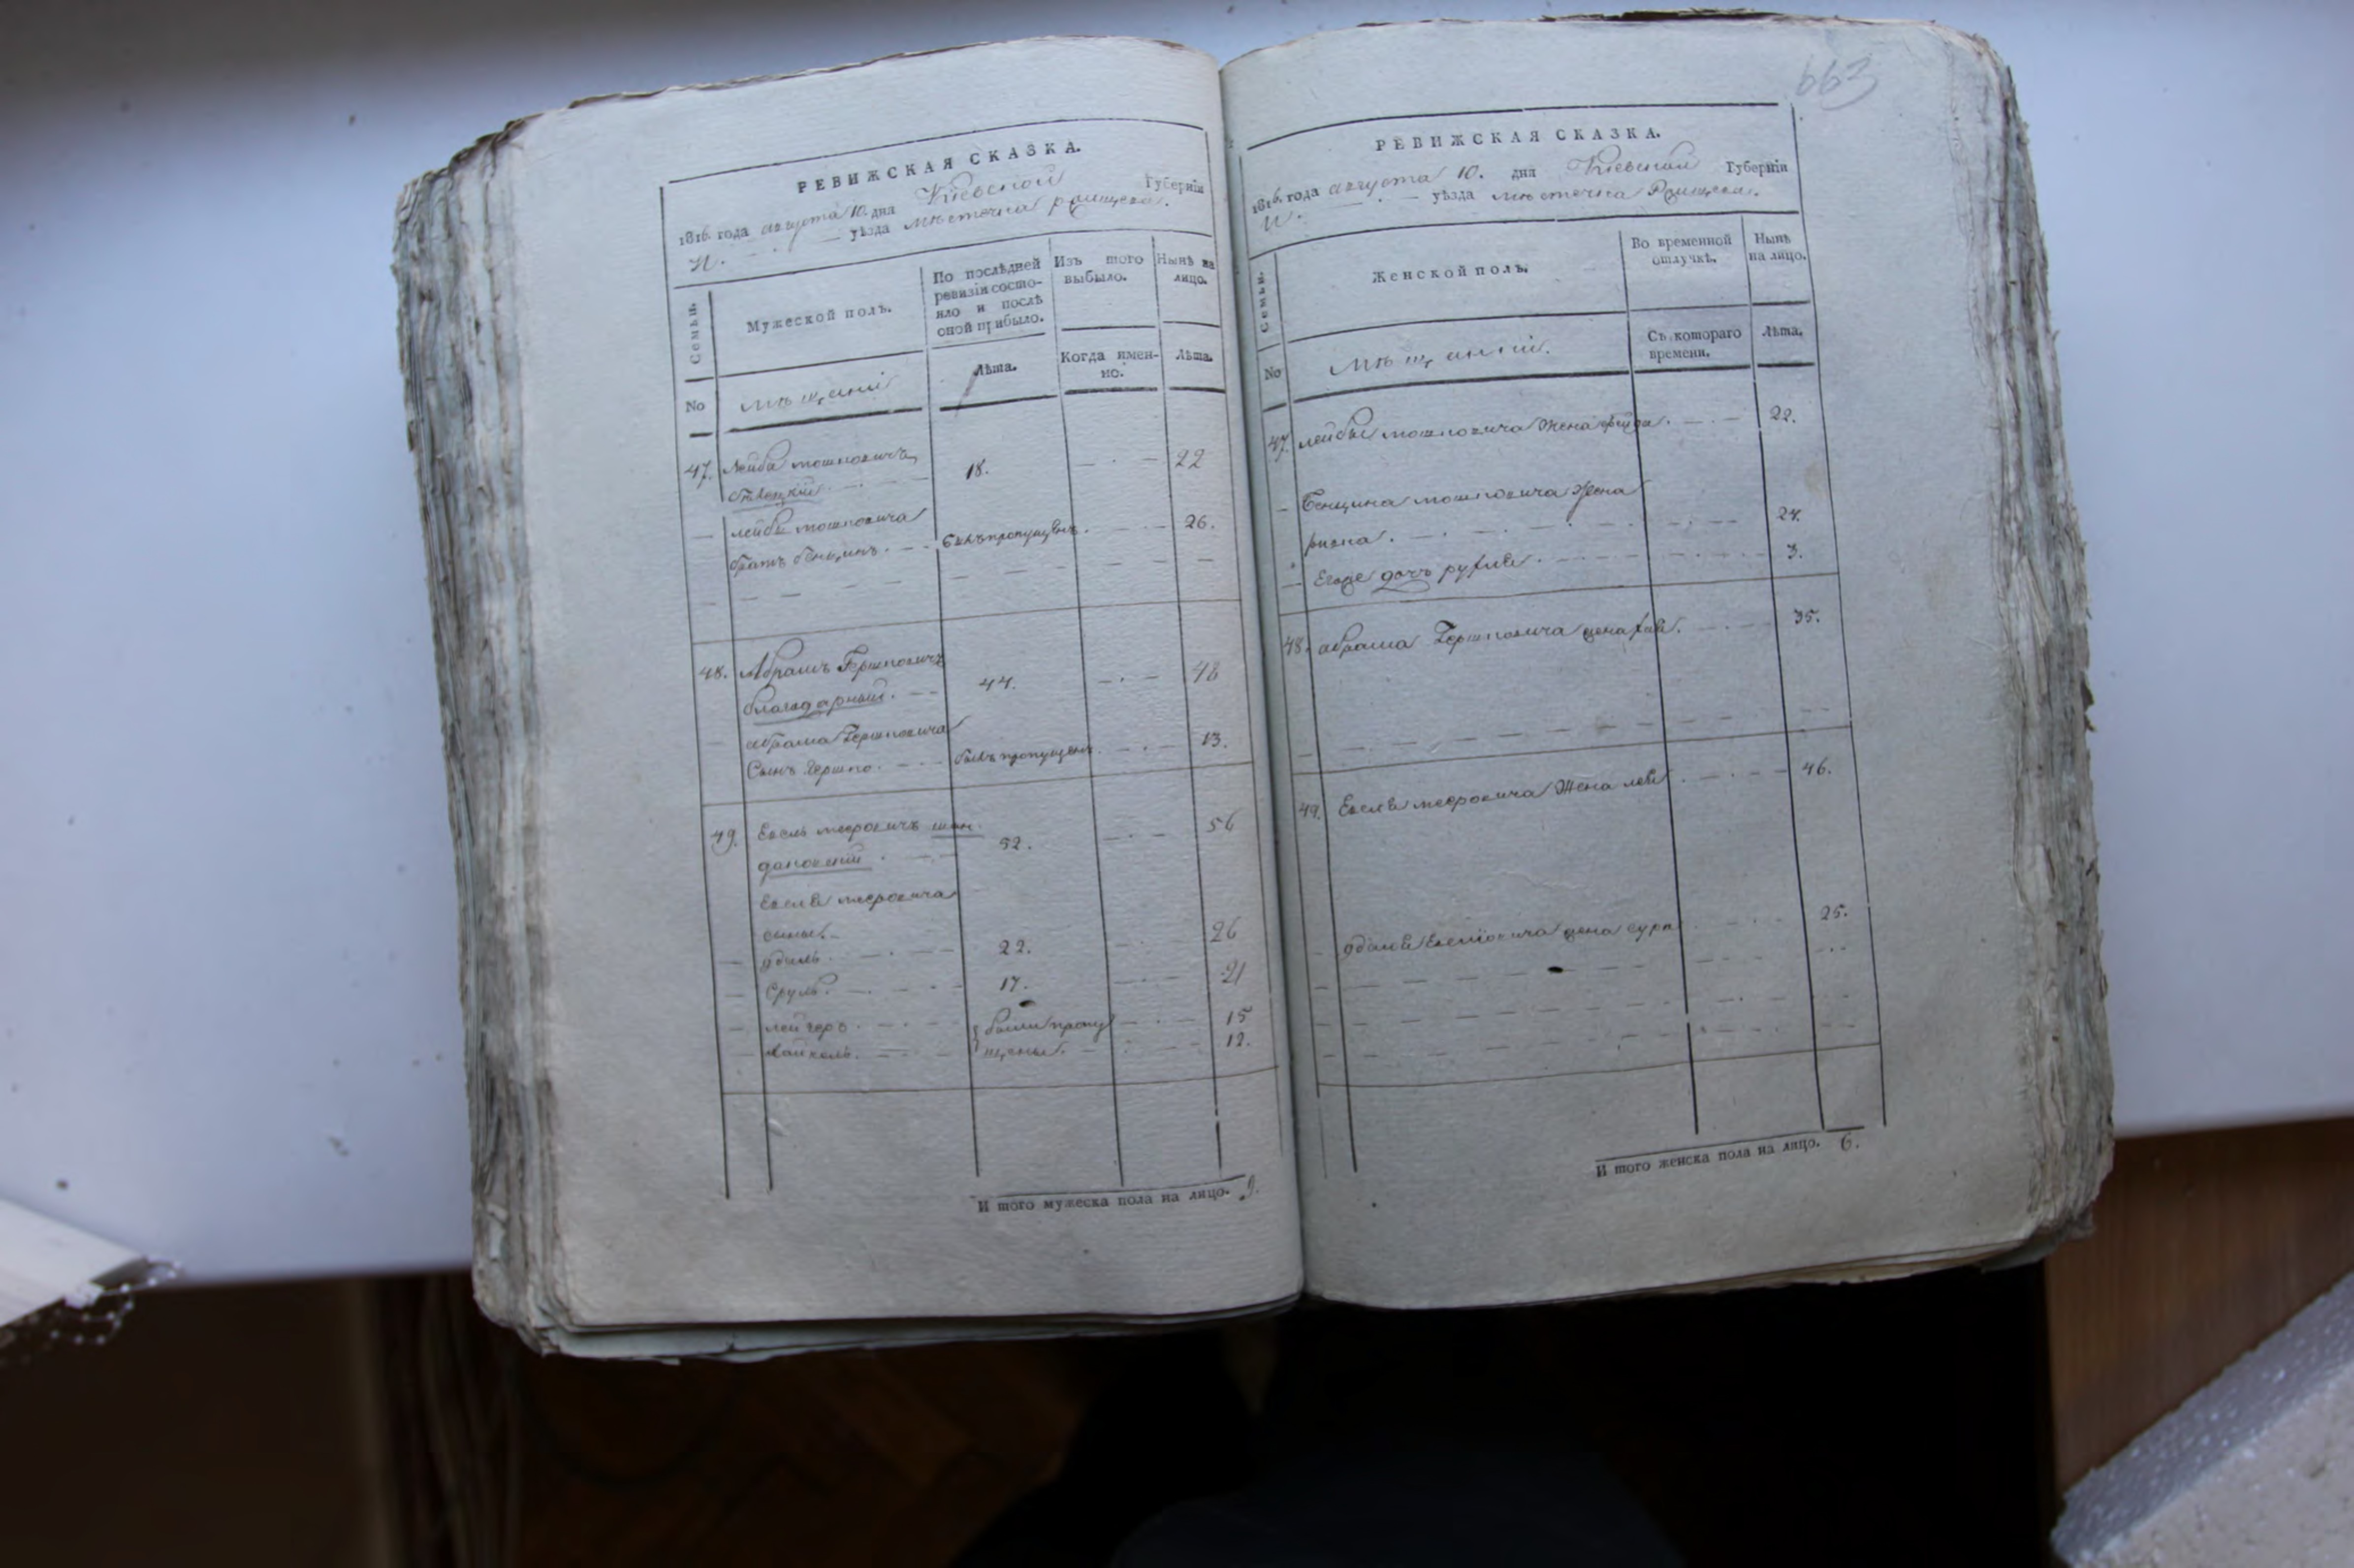 663
РЕВИЖСКАЯ СКАЗКА.
1816 года августа 10. дня Кіевской Губерніи
уѣзда мѣстечка
Семьи.
Мужеской полъ.
По послѣдней ревизіи состояло и послѣ оной прибыло.
Изъ того выбыло.
Нынѣ на лицо.
Лѣта.
Когда именно.
Лѣта.
No
мѣщаніи
47. Лейба мошковичъ
18. 22
лейбы мошковича
братъ бенцинъ. былъ пропущенъ. 26.
48. Абрамъ Гершковичъ
благодарный. 44. 48
абрама Гершковича
Сынъ Гершко. былъ пропущенъ. 13.
49. Екель меерович
52. 56
Екеля мееровича
сыны.
удель. 22. 26
Сруль. 17. 21
лейзеръ. были пропу 15
хаикель. щены. 12.
И того мужеска пола на лицо. 9.
РЕВИЖСКАЯ СКАЗКА.
1816 года августа 10. дня Кіевской Губерніи
уѣзда мѣстечка
Семьи.
Женской полъ.
Во временной отлучкѣ.
Нынѣ на лицо.
Съ котораго времени.
Лѣта.
No
Мѣщаніи.
47. лейбы мошковича Жена фейга. 22.
Бенцина мошковича Жена
ривка. 24.
Егоже дочь рухля. 3.
48. абрама Гершковича жена хая. 35.
49. Екеля мееровича Жена лея. 46.
Екелиовича жена сура 25.
И того женска пола на лицо. 6.